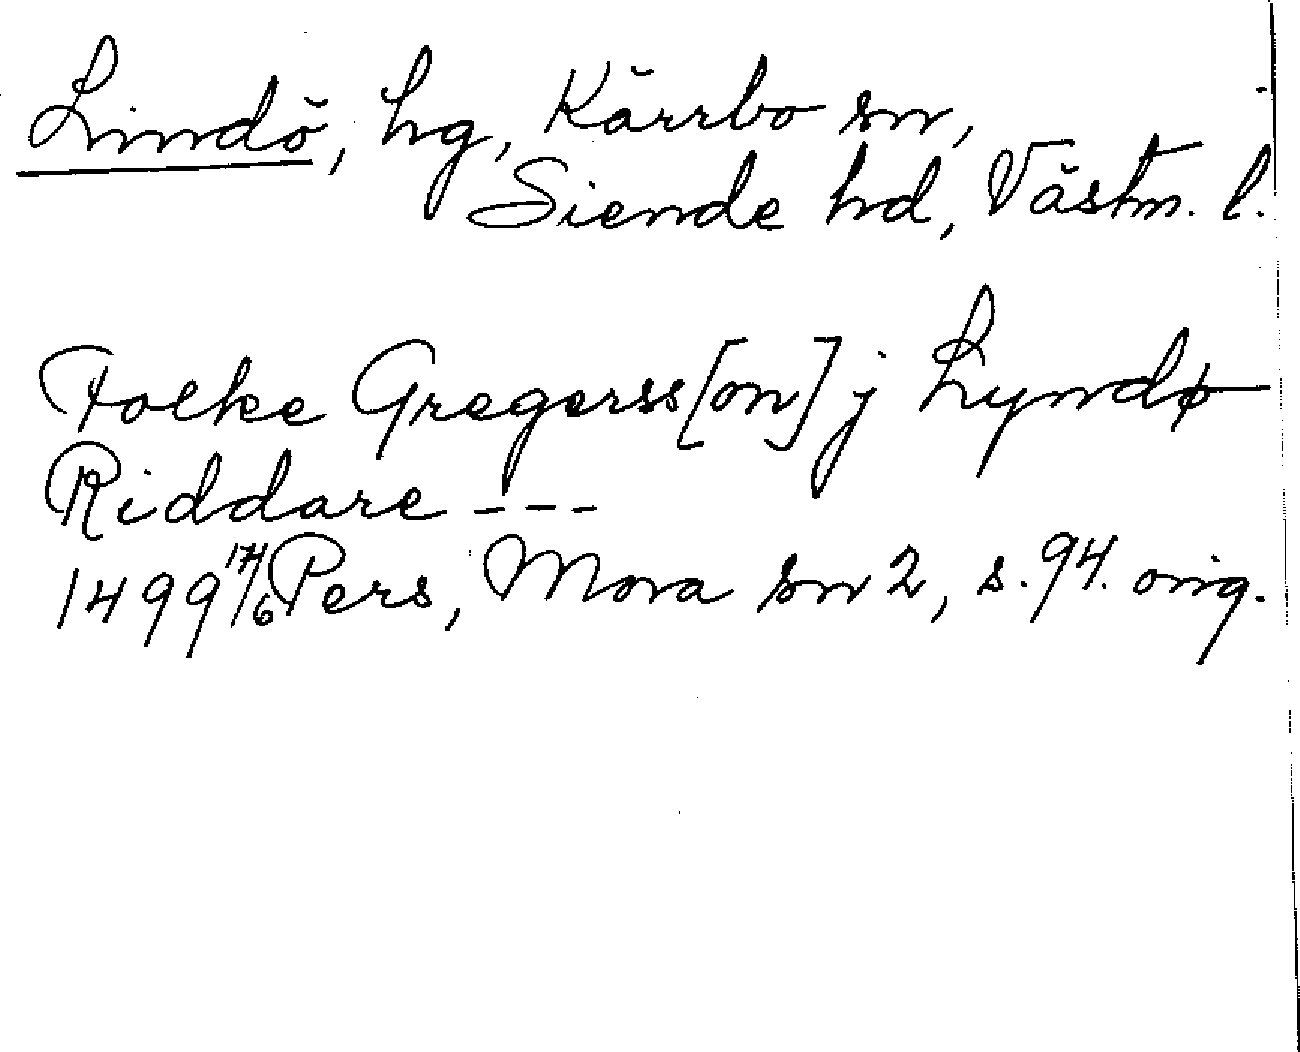 Lindö, hg, Kärrbo sn,
Siende hd, Västm. l.
Folke Gregerss[on] j Lyndø
Riddare ---
1499 17/6 Pers, Mora sn 2, s. 94. orig.